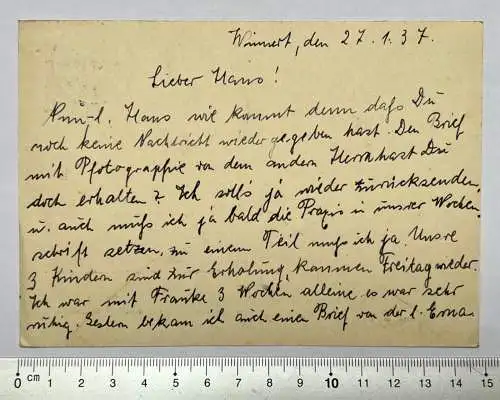 Winnert, den 27.1.37.
Lieber Hans!
Nun l. Hans wie kommt denn dafs Du
noch keine Nachricht wiedergegeben hast. Den Brief
mit Photographie von dem andern Herrn hast Du
doch erhalten? Ich solls ja wieder zurücksenden,
u. auch mufs ich ja bald die in unsrer Wochen-
schrift setzen, zu einem Teil mufs ich ja. Unsre
3 Kindern sind zur Erholung, kommen Freitag wieder.
Ich war mit Frauke 3 Wochen alleine. es war sehr
ruhig. Gestern bekam ich auch einen Brief von der l. Erna
0 cm 1 2 3 4 5 6 7 8 9 10 11 12 13 14 15